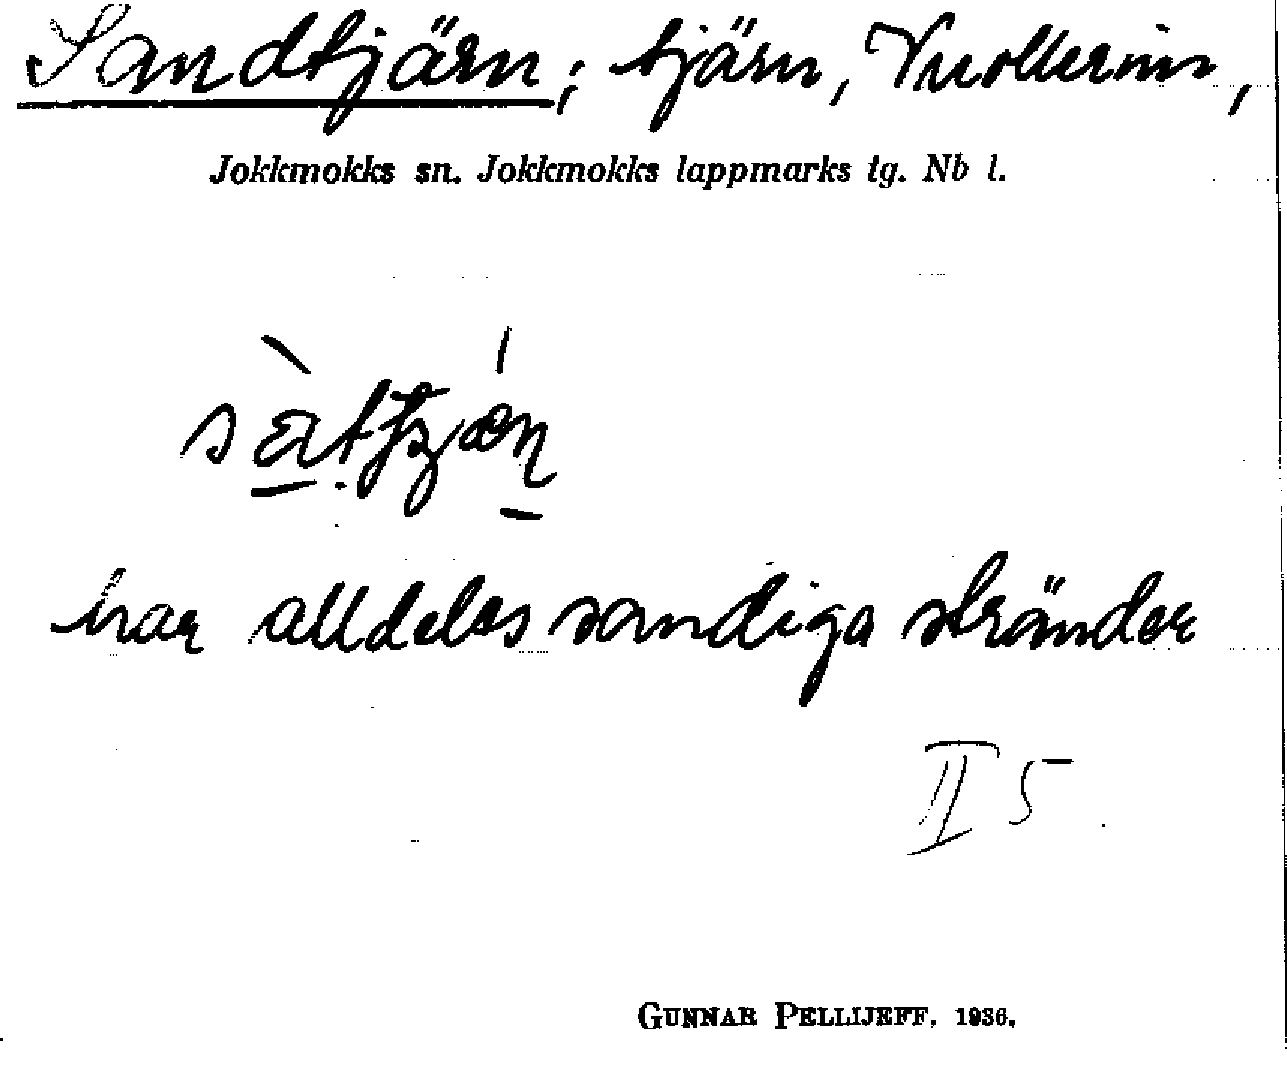 Sandtjärn; tjärn, Vuollerim,
Jokkmokks sn. Jokkmokks lappmarks tg. Nb l.
har alldeles sandiga stränder
II 5
GUNNAR PELLIJEFF. 1936.